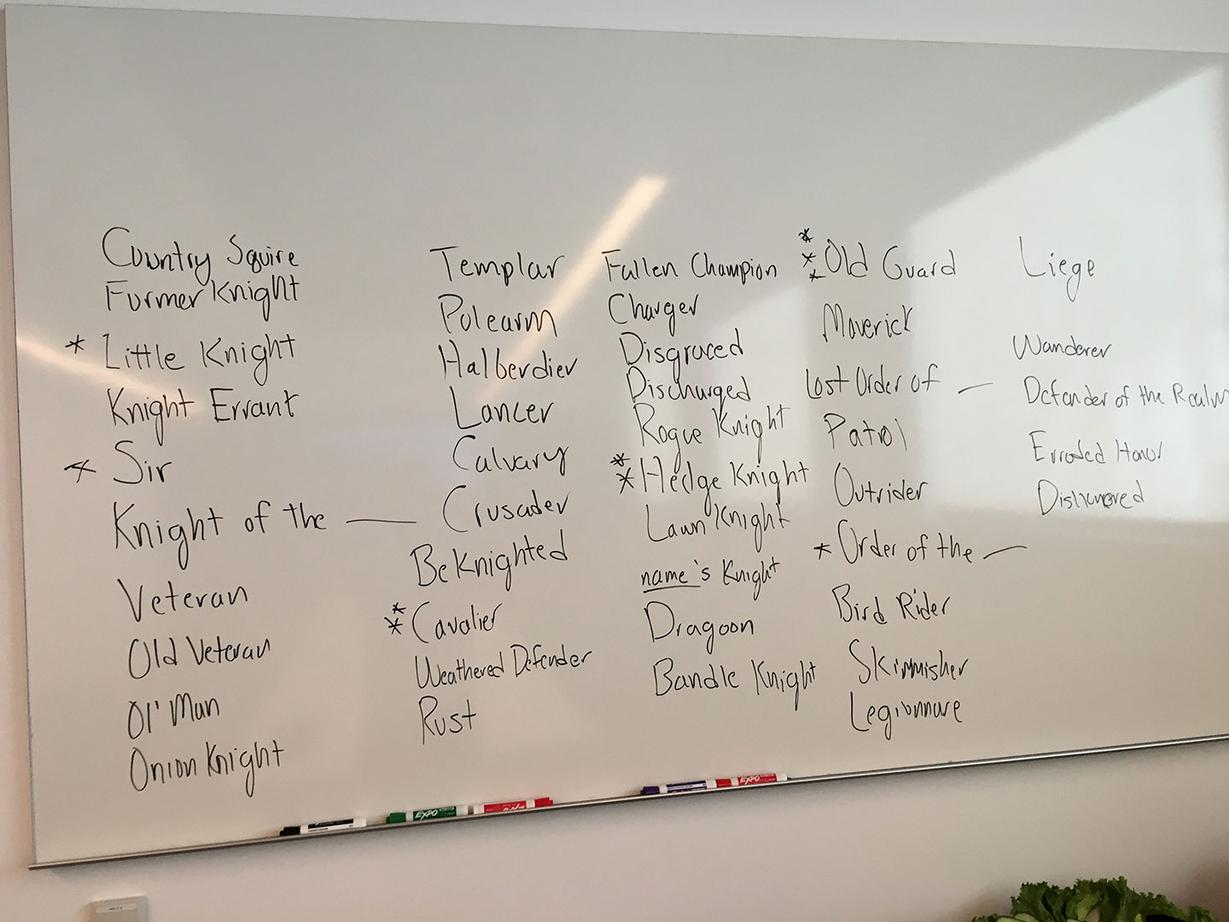 Country Squire
Former Knight
* Little Knight
Knight Errant
* Sir
Knight of the —
Veteran
Old Veteran
Ol' Man
Onion Knight
Templar
Polearm
Halberdier
Lancer
Calvary
Crusader
BeKnighted
** Cavalier
Weathered Defender
Rust
Fallen Champion
Charger
Disgraced
Discharged
Rogue Knight
** Hedge Knight
Lawn Knight
name's Knight
Dragoon
Bandle Knight
*** Old Guard
Maverick
Lost Order of —
Patrol
Outrider
* Order of the —
Bird Rider
Skirmisher
Legionnare
Liege
Wanderer
Defender of the Realm
Erroded Honor
Dishonored
EXPO
EXPO